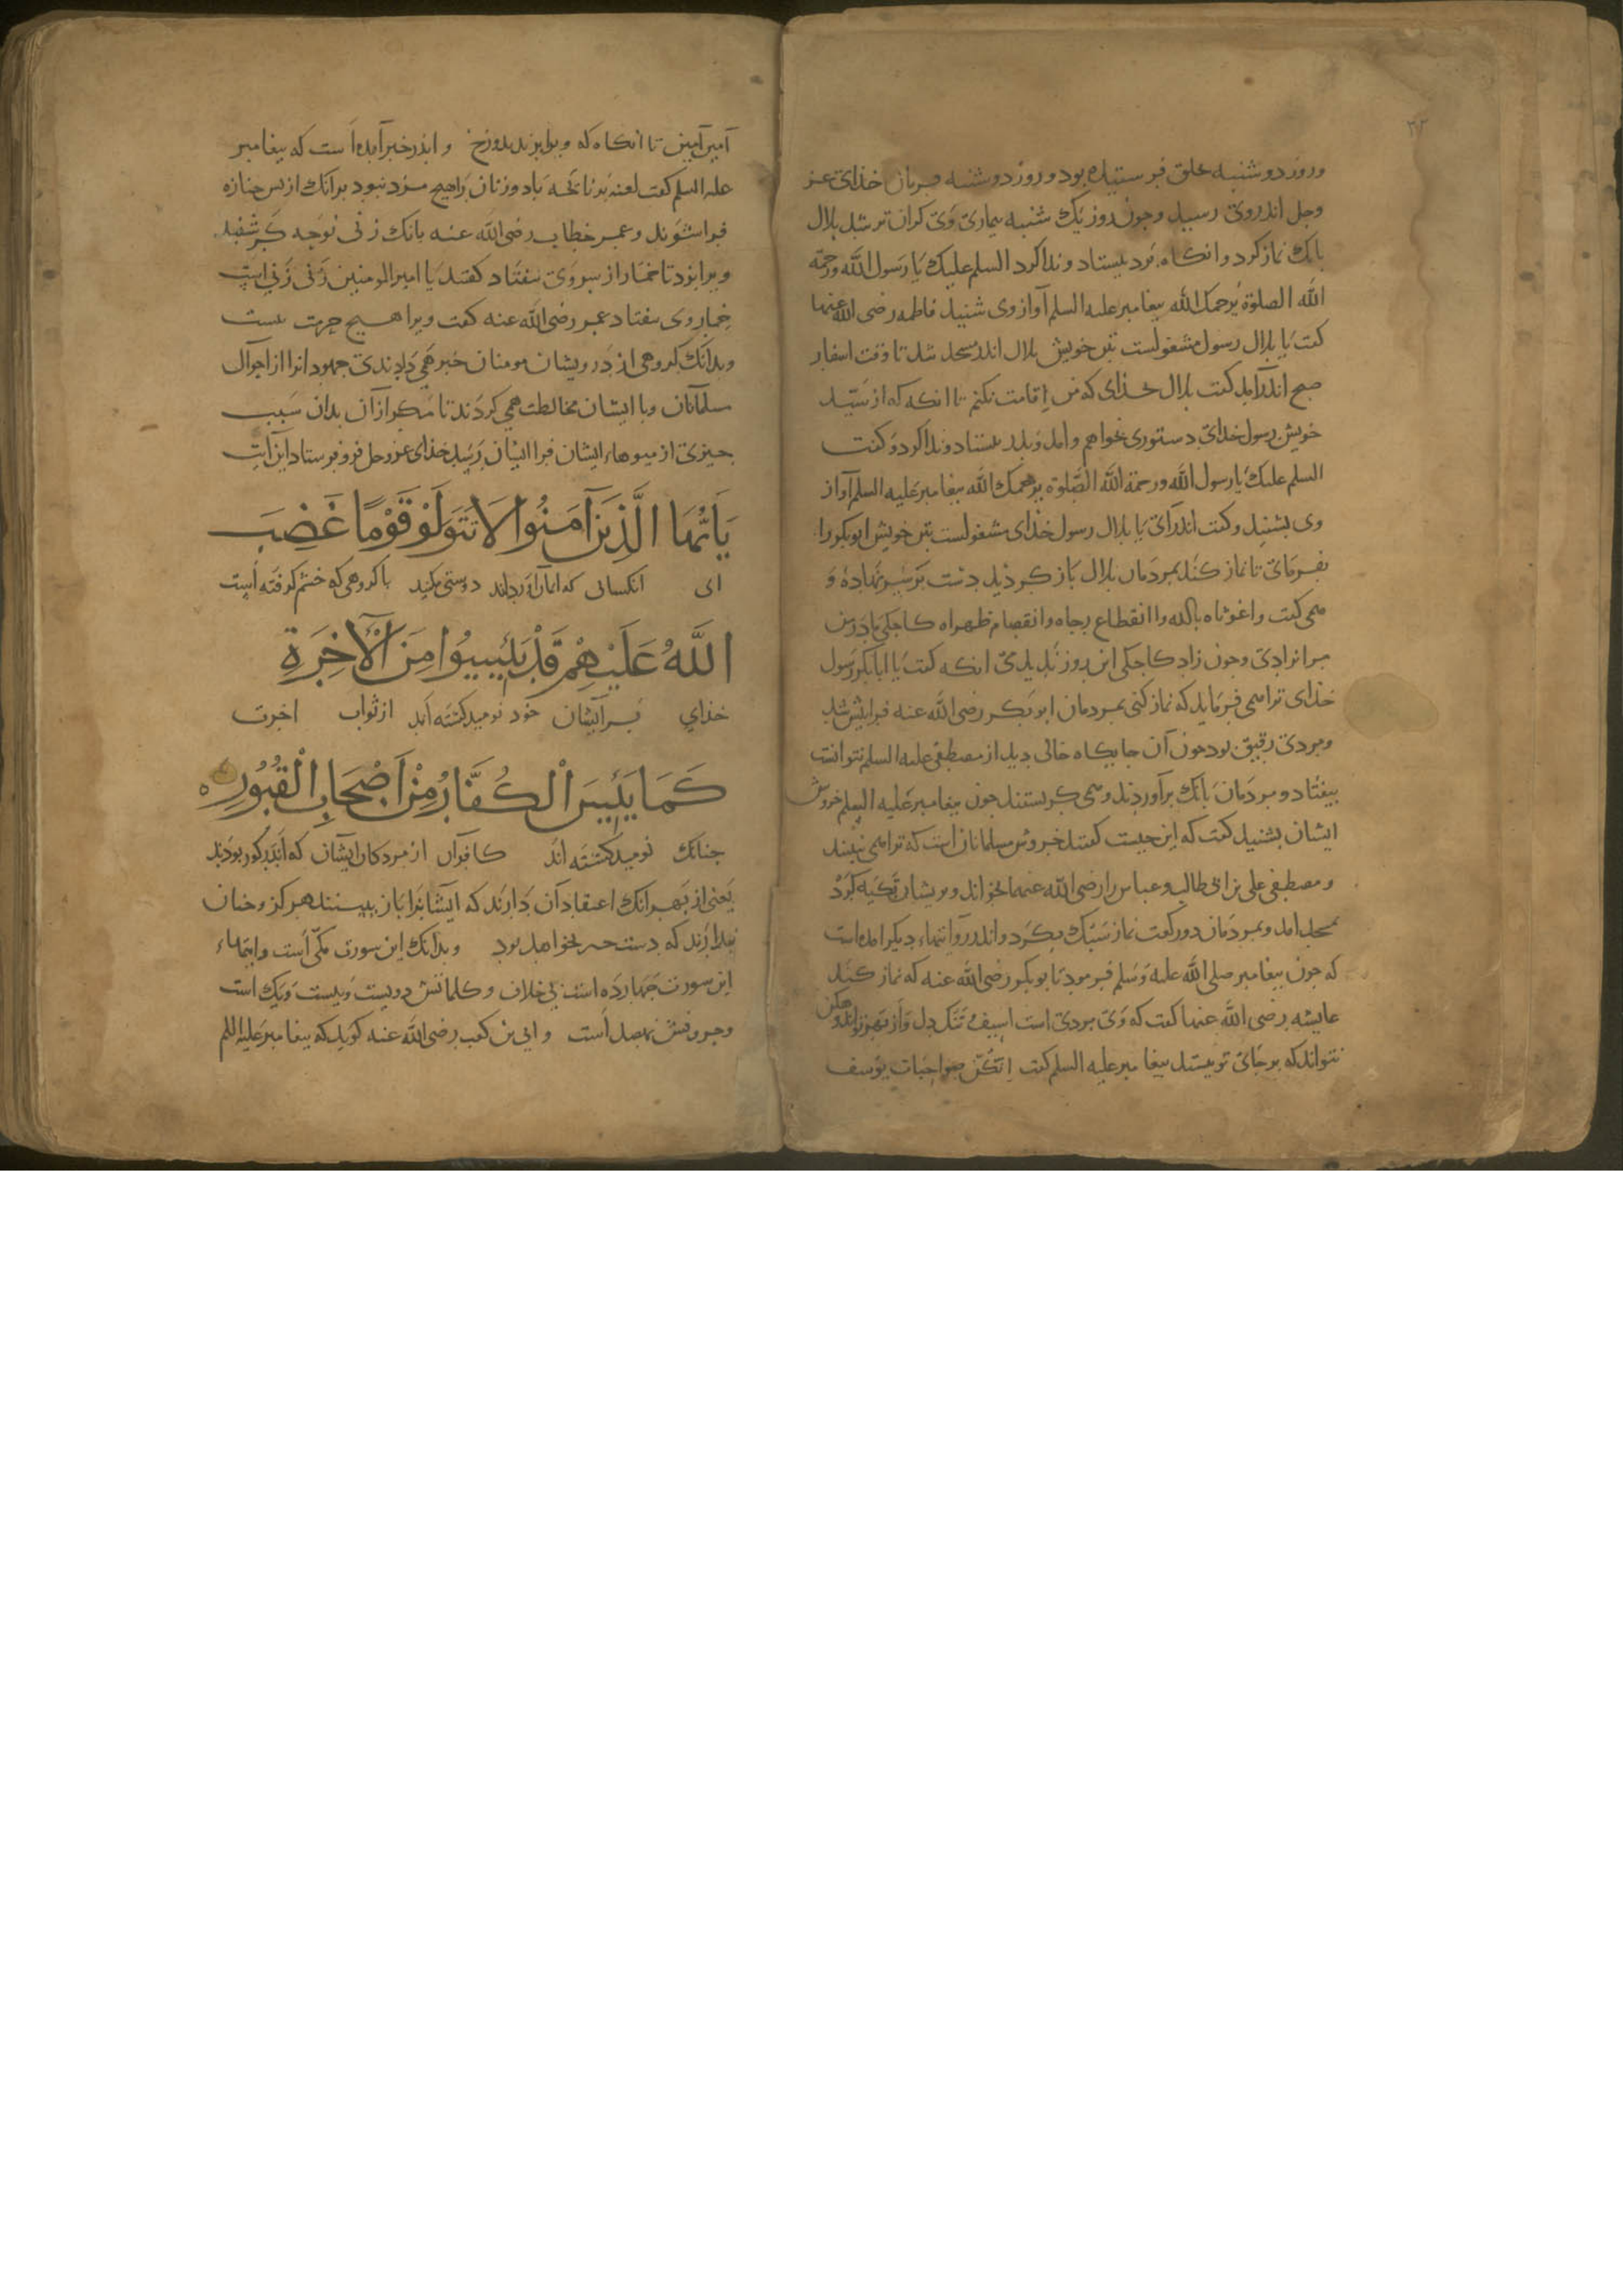 ۳۲
وروز دوشنبه خلق فرستیده بود و روز دوشنبه فرمان خذای عز
وجل اندروی رسید وجون روز یک شنبه بیماری وی کران تر شد بلال
بانک نماز کرد وانکاه بر در بیستاد و ندا کرد السلم علیک یا رسول الله ورحمة
الله الصلوة یرحمک الله بیغامبر علیه السلم آواز وی شنید فاطمه رضی الله عنها
کفت یا بلال رسول مشغولست بتن خویش بلال اندر مسجد شد تا وقت اسفار
صبح اندرآمد کفت بلال بخذای که من اقامت نکنم تا انکه که از سید
خویش رسول خدای دستوری بخواهم وامد وبدر بیستاد وندا کرد و کفت
السلم علیک یا رسول الله ورحمة الله الصلوة یرحمک الله بیغامبر علیه السلم آواز
وی بشنید وکفت اندرآی یا بلال رسول خذای مشغولست بتن خویش ابوبکر را
بفرمای تا نماز کند بمردمان بلال باز کردید دست بر سر نهاده و
می کفت واغوثاه بالله واانقطاع رجاه وانقصام ظهراه کاجکی مادر من
مرا نزادی وجون زاد کاجکی این روز ندیدمی انکه کفت یا ابابکر رسول
خذای ترا می فرماید که نماز کنی بمردمان ابوبکر رضی الله عنه فرابیش شد
ومردی رقیق بود جون آن جایکاه خالی دید از مصطفی علیه السلم نتوانست
بیفتاد و مردمان بانک برآوردند ومی کریستند جون بیغامبر علیه السلم خروش
ایشان بشنید کفت که این جیست کفتند خروش مسلمانان است که ترا می نبینند
ومصطفی علی بن ابی طالب وعباس را رضی الله عنهما بخواند وبریشان تکیه کرد
بمسجد امد وبمردمان دو رکعت نماز سبک بکرد واندر روایتهاء دیکر امده است
که جون بیغامبر صلی الله علیه وسلم فرمود تا بوبکر رضی الله عنه که نماز کند
عایشه رضی الله عنها کفت که وی مردی است اسیف تنک دل واز بهر تو اندوهکن
نتواند که بر جای تو بیستد بیغامبر علیه السلم کفت إنکن صواحبات یوسف
آمین آمین تا انکاه که ویرا بزند بدوزخ وانذر خبر آمده است که بیغامبر
علیه السلم کفت لعنه بر نایحه باد وزنان را هیج مزد نبود برانک از بس جنازه
فراشوند وعمر خطاب رضی الله عنه بانک زنی نوحه کر شنید
ویرا بزد تا خمار از سر وی بیفتاد کفتند یا امیر المومنین زنی زنی است
خمار وی بیفتاد عمر رضی الله عنه کفت ویرا هیج حرمت نیست
وبدانک کروهی از درویشان مومنان خبر همی دادندی جهودانرا از احوال
مسلمانان وبا ایشان مخالطت همی کردند تا مکر ازان بدان سبب
جیزی از میوهاء ایشان فرا ایشان رسد خذای عزوجل فرو فرستاد این آیت
یَا أَیُّهَا الَّذِینَ آمَنُوا لَا تَتَوَلَّوْا قَوْمًا غَضِبَ
ای انکسانی که ایمان آورده‌اند دوستی مکنید با کروهی که خشم کرفته است
اللَّهُ عَلَیْهِمْ قَدْ یَئِسُوا مِنَ الْآخِرَةِ
خذای بر ایشان خود نومید کشته‌اند از ثواب اخرت
کَمَا یَئِسَ الْکُفَّارُ مِنْ أَصْحَابِ الْقُبُورِ ه
جنانک نومید کشته‌اند کافران از مردکان ایشان که اندر کور بودند
یعنی از بهر انک اعتقاد آن دارند که ایشانرا باز نبینند هرکز وجنان
بندارند که رستخیز نخواهد بود وبدانک این سورت مکی است وایتهاء
این سورت جهارده است بی خلاف وکلماتش دویست وبیست ویک است
وحروفش نهصد است وابی بن کعب رضی الله عنه کوید که بیغامبر علیه السلم